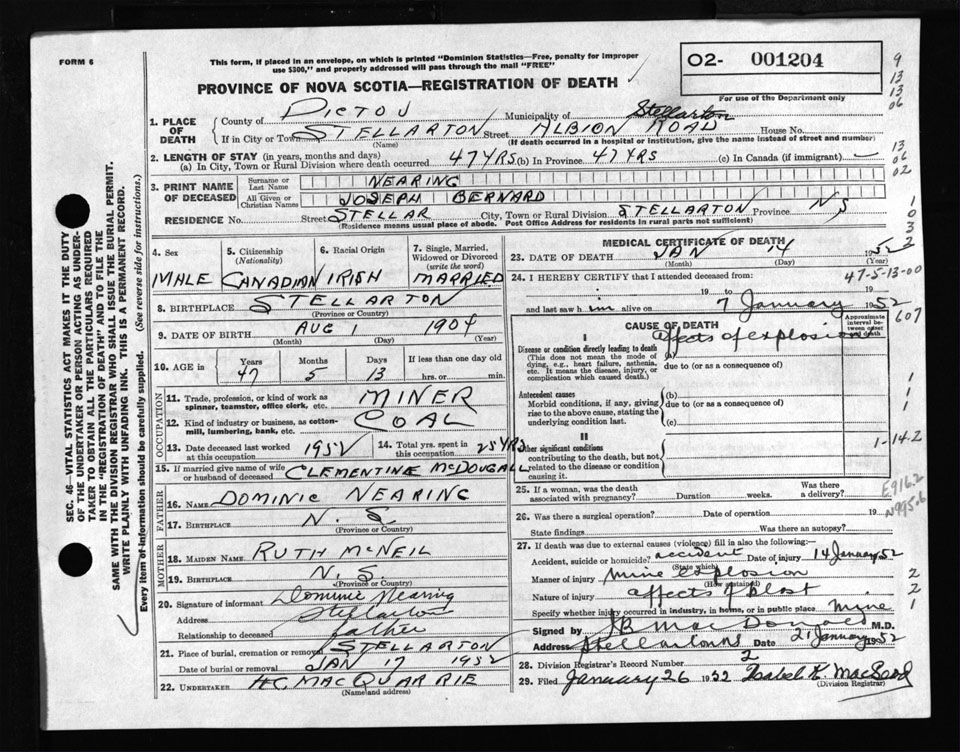 FORM 6
This form, if placed in an envelope, on which is printed "Dominion Statistics—Free, penalty for improper
use $300," and properly addressed will pass through the mail "FREE"
O2- 001204
For use of the Department only
PROVINCE OF NOVA SCOTIA—REGISTRATION OF DEATH
9
13
13
06
13
06
02
1
0
3
2
1. PLACE OF DEATH
County of PICTOU Municipality of Stellarton
If in City or Town STELLARTON Street ALBION ROAD House No.
(Name) (If death occurred in a hospital or institution, give the name instead of street and number)
2. LENGTH OF STAY (in years, months and days)
(a) In City, Town or Rural Division where death occurred 47 YRS (b) In Province 47 YRS (c) In Canada (if immigrant) —
3. PRINT NAME OF DECEASED
Surname or Last Name NEARING
All Given or Christian Names JOSEPH BERNARD
RESIDENCE No. Street STELLAR City, Town or Rural Division STELLARTON Province N S
(Residence means usual place of abode. Post Office Address for residents in rural parts not sufficient)
4. Sex 5. Citizenship (Nationality) 6. Racial Origin 7. Single, Married, Widowed or Divorced (write the word)
MALE CANADIAN IRISH MARRIED
8. BIRTHPLACE STELLARTON
(Province or Country)
9. DATE OF BIRTH AUG 1 1904
(Month) (Day) (Year)
10. AGE in Years Months Days If less than one day old
47 5 13 hrs. or min.
OCCUPATION
11. Trade, profession, or kind of work as spinner, teamster, office clerk, etc. MINER
12. Kind of industry or business, as cotton-mill, lumbering, bank, etc. COAL
13. Date deceased last worked at this occupation 1952 14. Total yrs. spent in this occupation 25 YRS
15. If married give name of wife or husband of deceased CLEMENTINE McDOUGALL
FATHER
16. NAME DOMINIC NEARING
17. BIRTHPLACE N. S
(Province or Country)
MOTHER
18. MAIDEN NAME RUTH McNEIL
19. BIRTHPLACE N. S
(Province or Country)
20. Signature of informant Dominic Nearing
Address Stellarton
Relationship to deceased father
21. Place of burial, cremation or removal STELLARTON
Date of burial or removal JAN 17 1952
22. UNDERTAKER H.C. MACQUARRIE
(Name and address)
MEDICAL CERTIFICATE OF DEATH
23. DATE OF DEATH JAN 14 1952
(Month) (Day)
47-5-13-00
24. I HEREBY CERTIFY that I attended deceased from
19 to 19
and last saw him alive on 7 January 1952
607
CAUSE OF DEATH
Approximate interval between onset and death
I
Disease or condition directly leading to death
(This does not mean the mode of dying, e.g., heart failure, asthenia, etc. It means the disease, injury, or complication which caused death.)
(a) effects of explosion
due to (or as a consequence of)
Antecedent causes
Morbid conditions, if any, giving rise to the above cause, stating the underlying condition last.
(b)
due to (or as a consequence of)
(c)
1
1
1
II
Other significant conditions
contributing to the death, but not related to the disease or condition causing it.
1-14-2
25. If a woman, was the death associated with pregnancy? Duration weeks. Was there a delivery?
E916.2
26. Was there a surgical operation? Date of operation 19
State findings Was there an autopsy?
N995.6
27. If death was due to external causes (violence) fill in also the following:—
Accident, suicide or homicide? accident Date of injury 14 January 52
(State which)
Manner of injury mine explosion
(How sustained)
Nature of injury effects of blast
Specify whether injury occurred in industry, in home, or in public place mine
2
2
1
Signed by MacDonald M.D.
Address Stellarton Date 21 January 1952
28. Division Registrar's Record Number 2
29. Filed January 26 1952 Isabel K. MacLeod
(Division Registrar)
SEC. 46—VITAL STATISTICS ACT MAKES IT THE DUTY
OF THE UNDERTAKER OR PERSON ACTING AS UNDER-
TAKER TO OBTAIN ALL THE PARTICULARS REQUIRED
IN THE "REGISTRATION OF DEATH" AND TO FILE THE
SAME WITH THE DIVISION REGISTRAR WHO SHALL ISSUE THE BURIAL PERMIT.
WRITE PLAINLY WITH UNFADING INK. THIS IS A PERMANENT RECORD.
Every item of information should be carefully supplied. (See reverse side for instructions.)